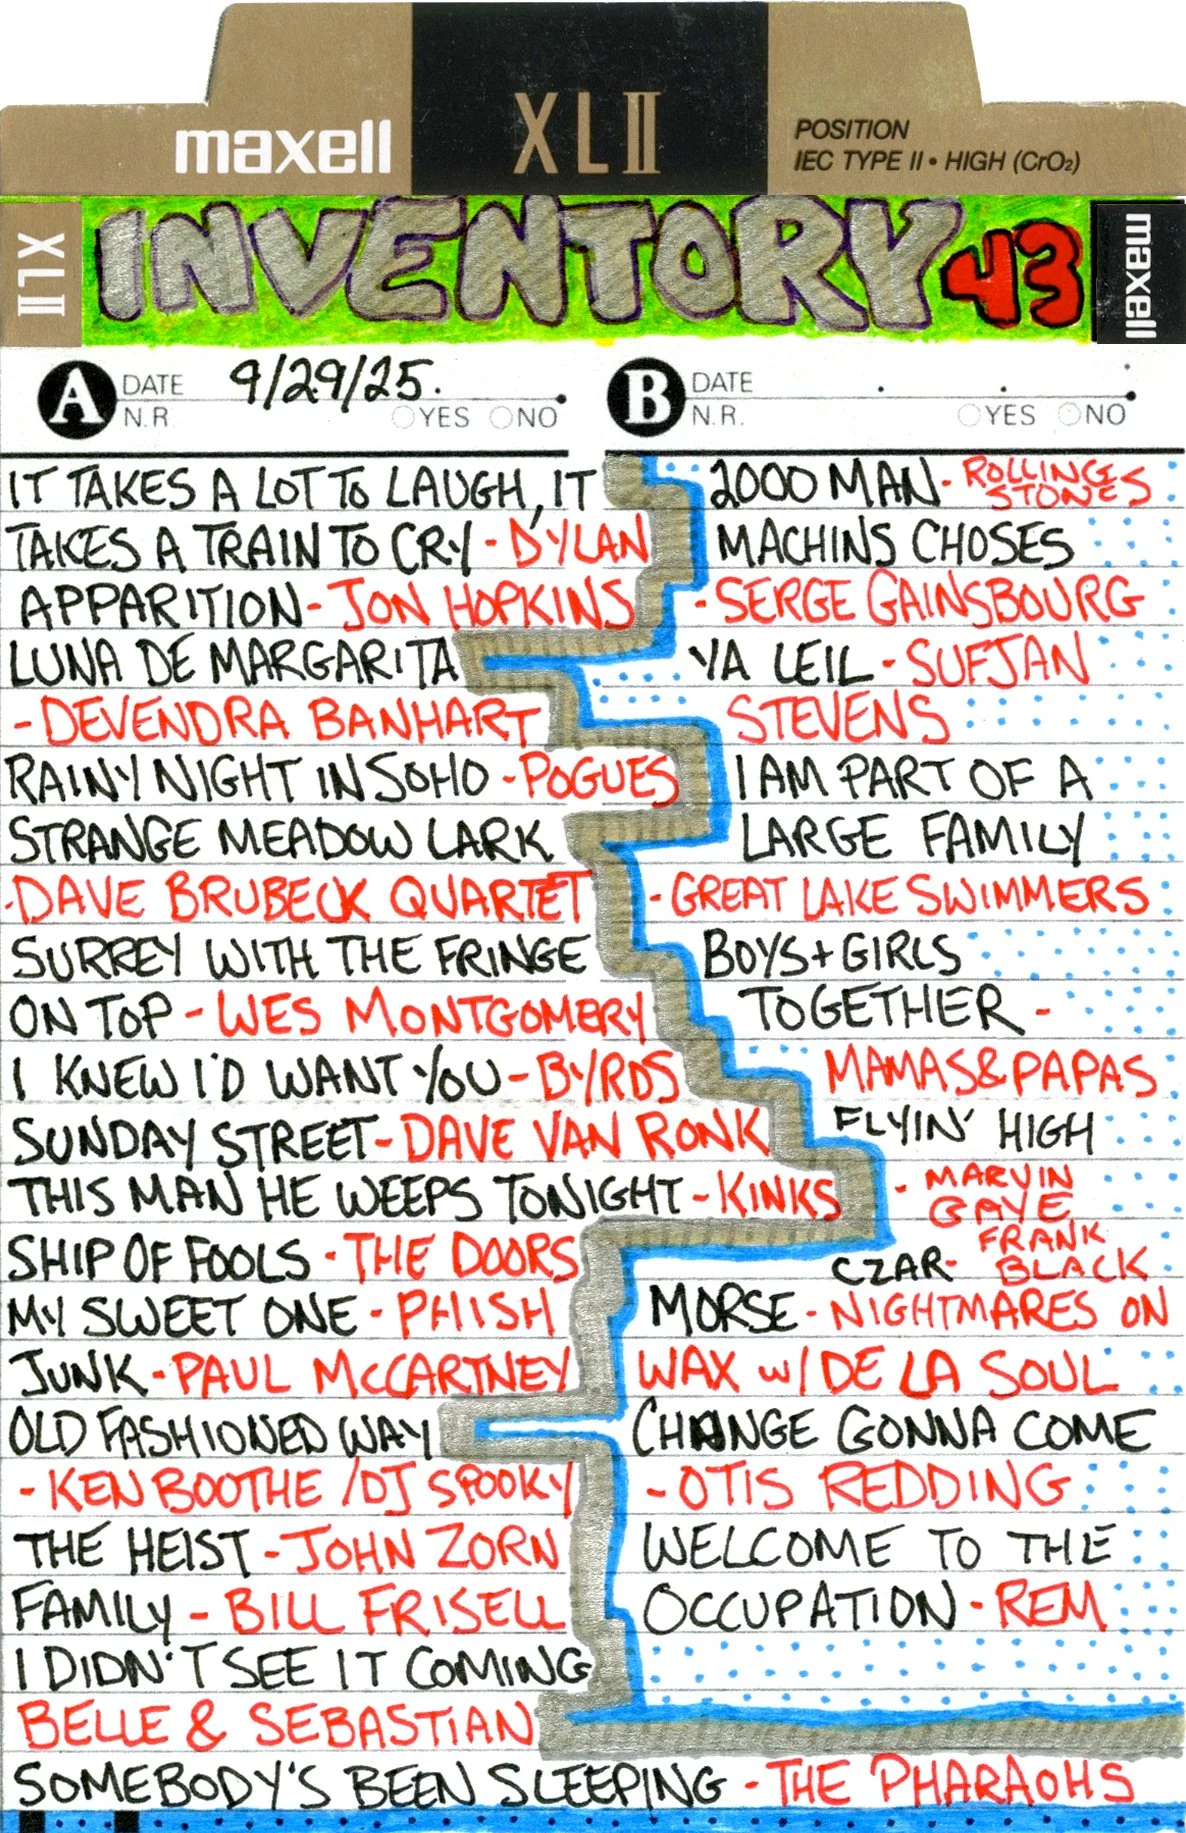 maxell
XLII
POSITION
IEC TYPE II • HIGH (CrO₂)
XLII
INVENTORY 43
maxell
A DATE 9/29/25.
N.R. YES NO
B DATE
N.R. YES NO
IT TAKES A LOT TO LAUGH, IT
TAKES A TRAIN TO CRY - DYLAN
APPARITION - JON HOPKINS
LUNA DE MARGARITA
- DEVENDRA BANHART
RAINY NIGHT IN SOHO - POGUES
STRANGE MEADOW LARK
- DAVE BRUBECK QUARTET
SURREY WITH THE FRINGE
ON TOP - WES MONTGOMERY
I KNEW I'D WANT YOU - BYRDS
SUNDAY STREET - DAVE VAN RONK
THIS MAN HE WEEPS TONIGHT - KINKS
SHIP OF FOOLS - THE DOORS
MY SWEET ONE - PHISH
JUNK - PAUL McCARTNEY
OLD FASHIONED WAY
- KEN BOOTHE / DJ SPOOKY
THE HEIST - JOHN ZORN
FAMILY - BILL FRISELL
I DIDN'T SEE IT COMING
BELLE & SEBASTIAN
SOMEBODY'S BEEN SLEEPING - THE PHARAOHS
2000 MAN - ROLLING
STONES
MACHINS CHOSES
- SERGE GAINSBOURG
YA LEIL - SUFJAN
STEVENS
I AM PART OF A
LARGE FAMILY
- GREAT LAKE SWIMMERS
BOYS + GIRLS
TOGETHER -
MAMAS & PAPAS
FLYIN' HIGH
- MARVIN
GAYE
CZAR - FRANK
BLACK
MORSE - NIGHTMARES ON
WAX w/ DE LA SOUL
CHANGE GONNA COME
- OTIS REDDING
WELCOME TO THE
OCCUPATION - REM